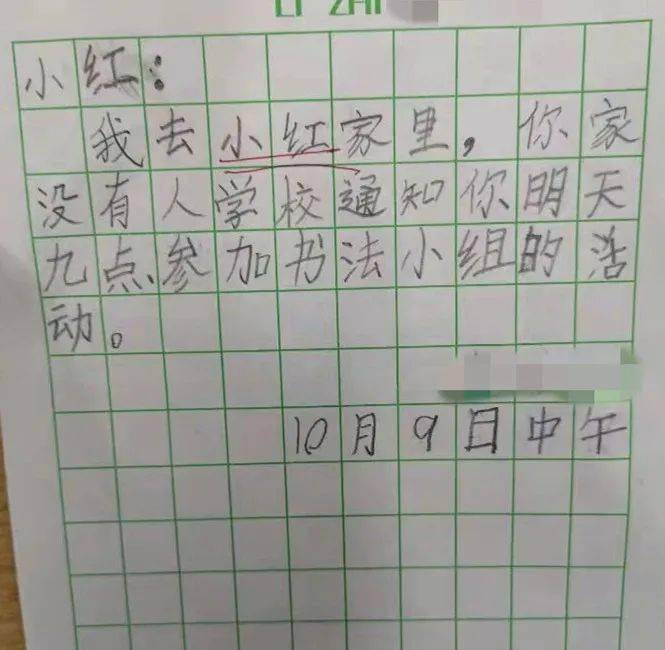 小红：
我去小红家里，你家
没有人学校通知你明天
九点、参加书法小组的活
动。
10月9日中午